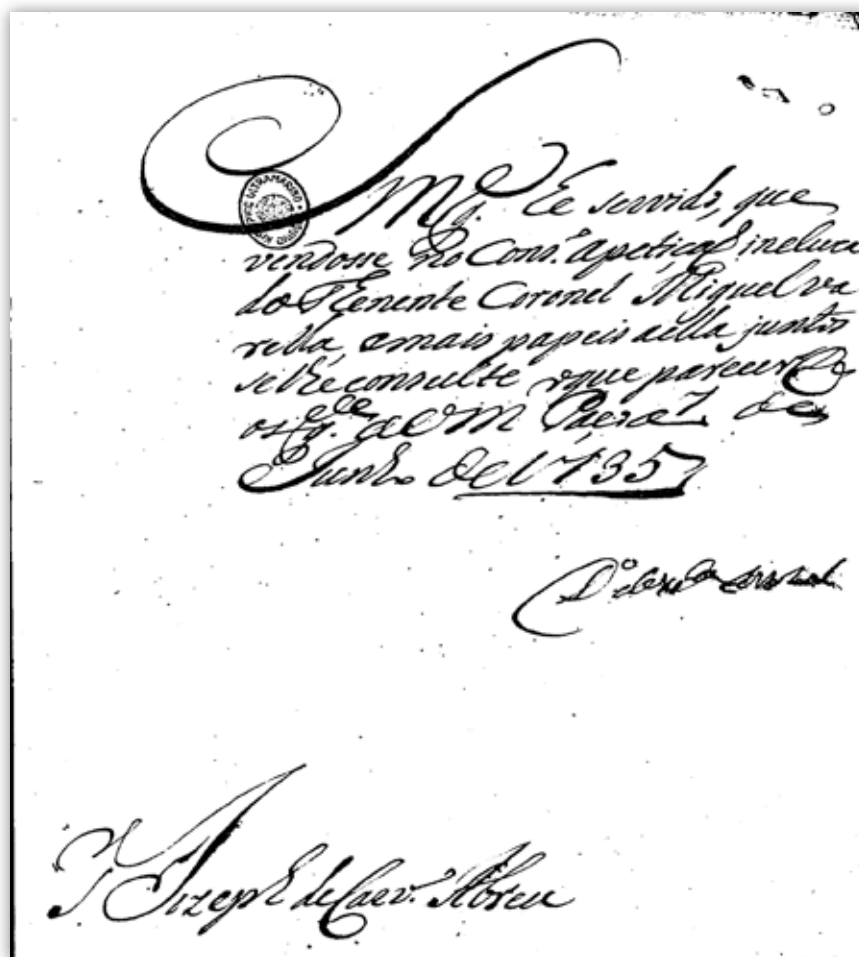 S Mg.e he servido, que
vendosse no Cons.o a petiçaõ incluza
do Thenente Coronel Miguel va
rella, e mais papeis a ella juntos
se lhe consulte o que parecer D
os g.de a V M Paço a 7 de
Junho de 1735
S.r Jozeph de Carv.o Abreu